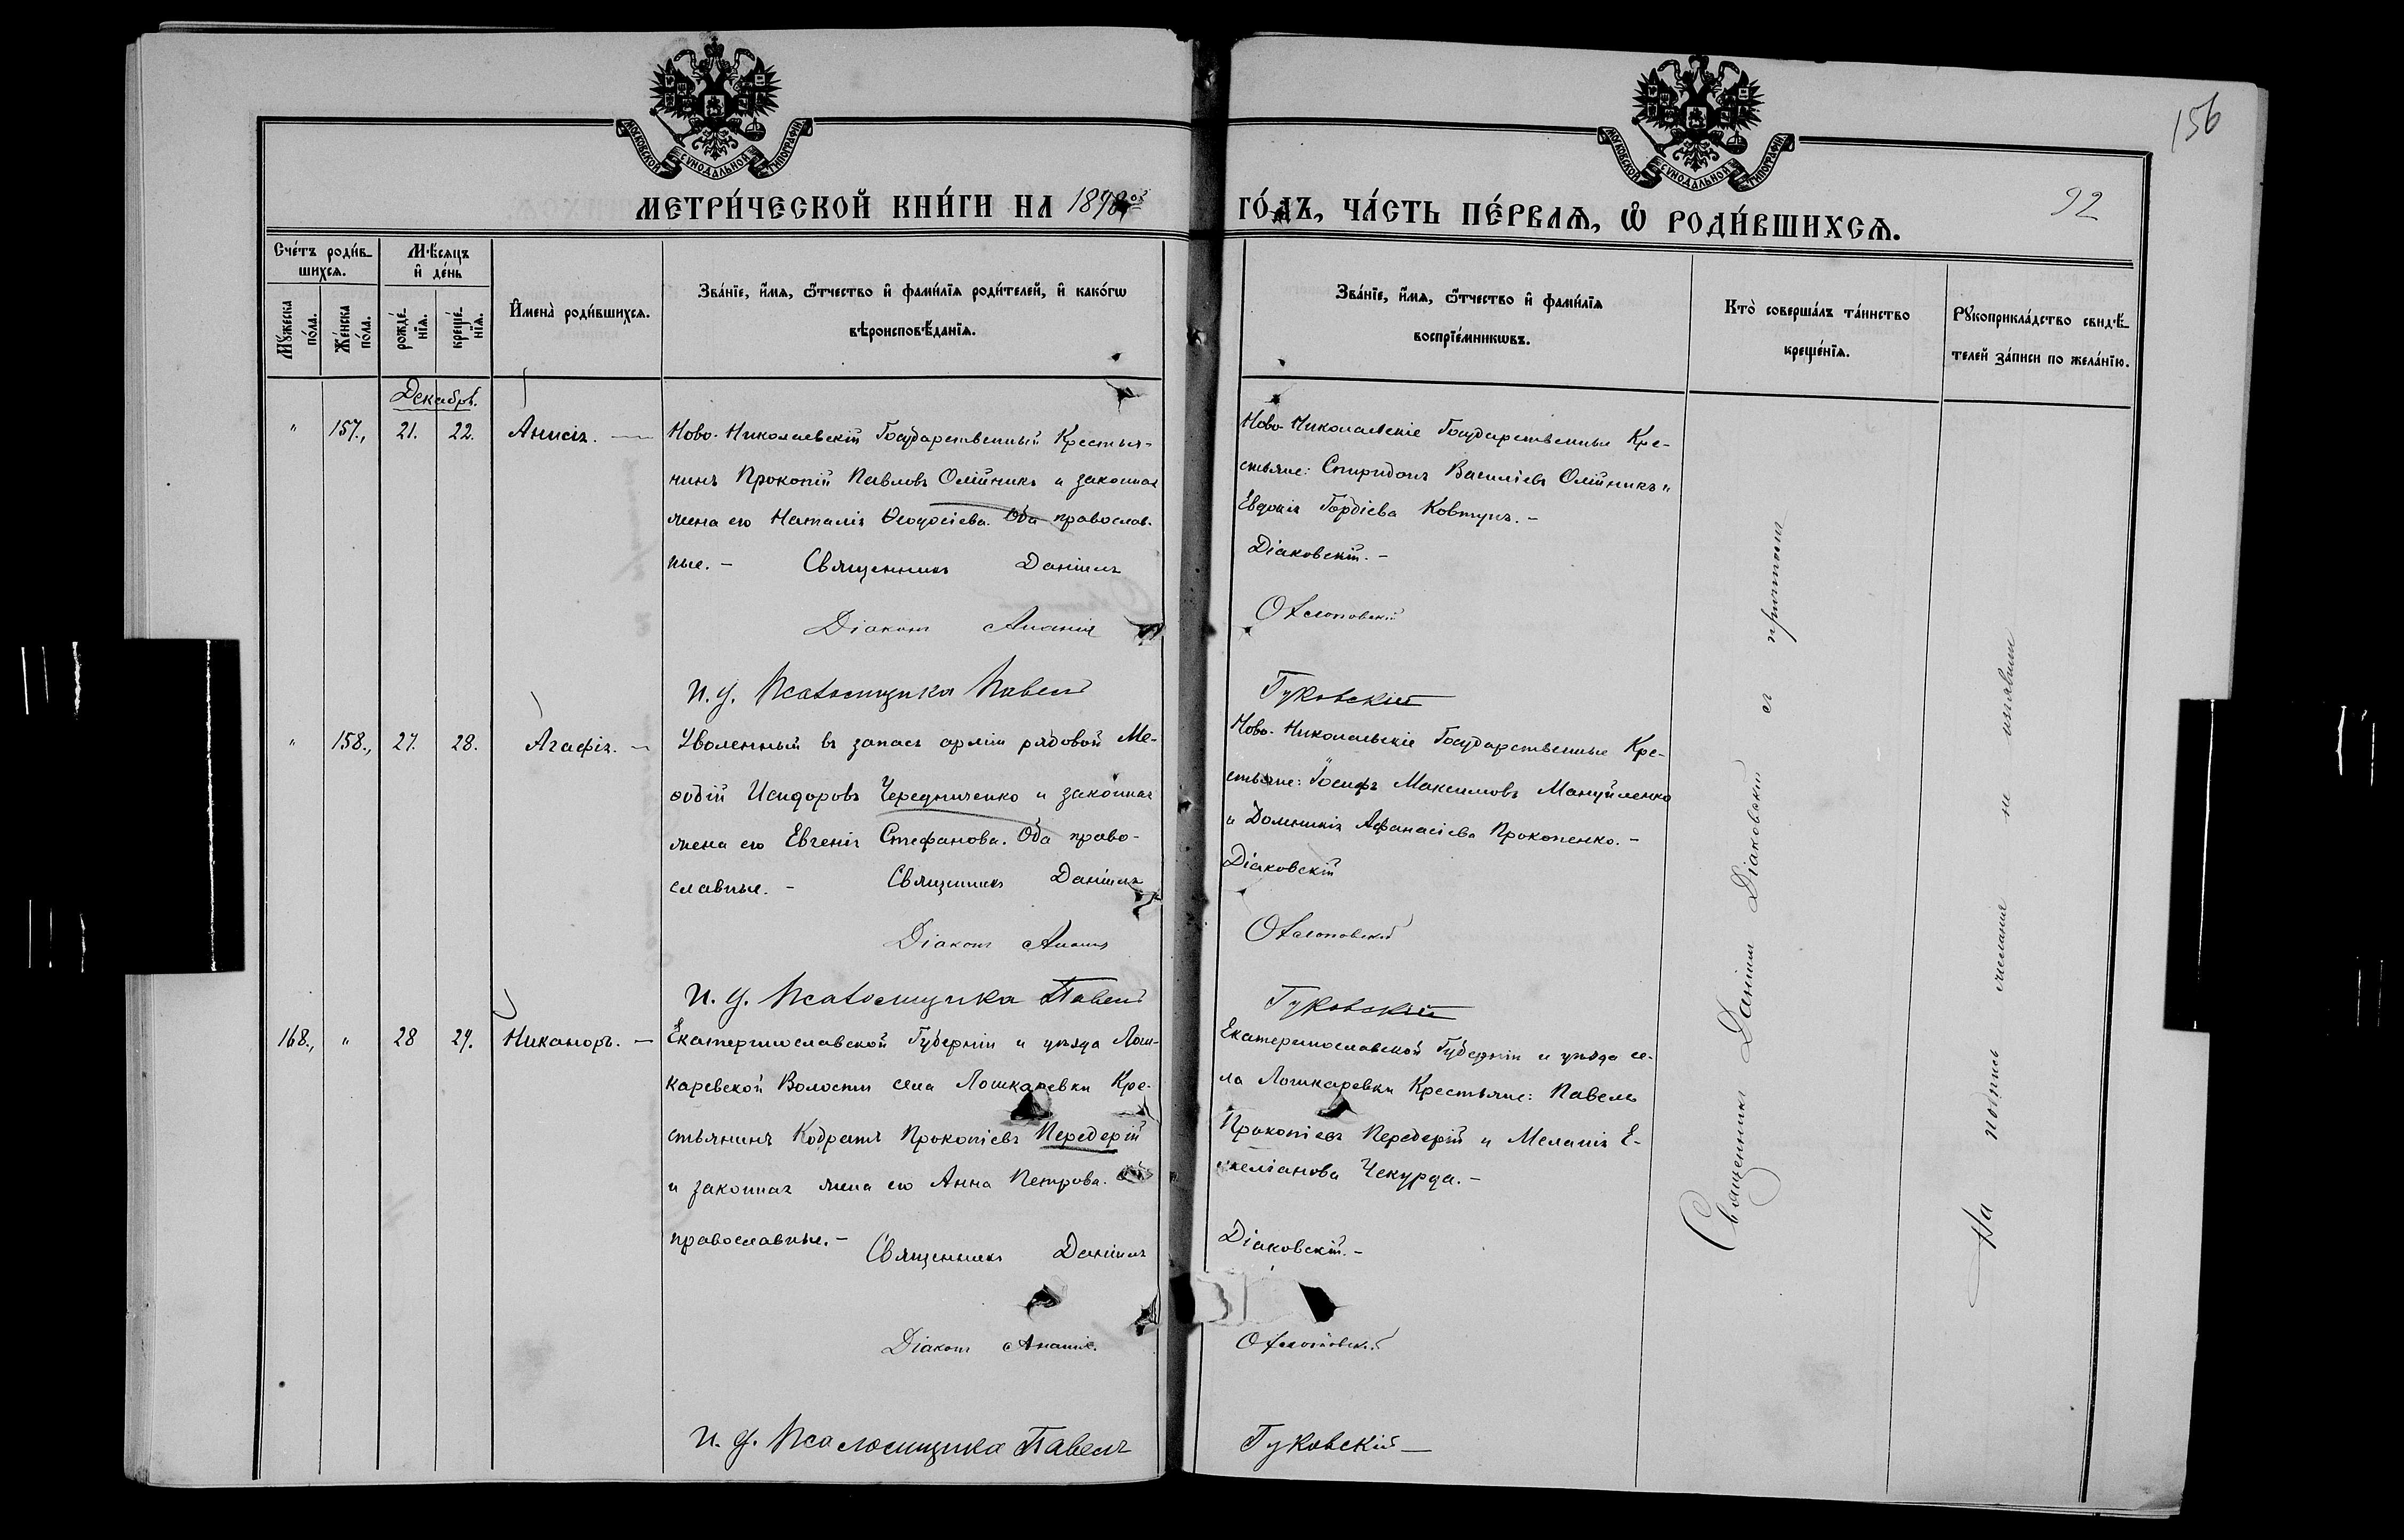 МОСКОВСКОЙ СѴНОДАЛЬНОЙ ТИПОГРАФІИ
МОСКОВСКОЙ СѴНОДАЛЬНОЙ ТИПОГРАФІИ
156
92
МЕТРИ́ЧЕСКОЙ КНИ́ГИ НА 1898ой ГО́ДЪ, ЧА́СТЬ ПЕ́РВАѦ, Ѡ РОДИ́ВШИХСѦ.
Сче́тъ роди́в-
шихсѧ.
Мꙋ́жеска по́ла.
Же́нска по́ла.
Мѣ́сѧцъ
и҆ де́нь
рожде́-
нїѧ.
креще́-
нїѧ.
И҆мена̀ роди́вшихсѧ.
Зва́нїе, и҆́мѧ, ѻ҆́тчество и҆ фами́лїѧ роди́телей, и҆ како́гѡ
вѣроисповѣ́данїѧ.
Зва́нїе, и҆́мѧ, ѻ҆́тчество и҆ фами́лїѧ
воспрїе́мникѡвъ.
Кто̀ соверша́лъ та́инство
креще́нїѧ.
Рꙋкоприкла́дство свидѣ́-
телей за́писи по жела́нїю.
Декабрь.
" 157., 21. 22. Анисія. —
Ново-Николаевскій Государственный Крестья-
нинъ Прокопій Павловъ Олійникъ и законная
жена его Наталія Ѳеодосіева. Оба православ-
ные. — Священникъ Даніилъ
Діаконъ Ананія
И. д. Псаломщика Павелъ
Ново-Николаевскіе Государственные Кре-
стьяне: Спиридонъ Василіевъ Олійникъ и
Евдокія Гордіева Ковтунъ. —
Діаковскій. —
Гуковскій
" 158., 27. 28. Агафія. —
Уволенный въ запасъ арміи рядовой Ме-
ѳодій Исидоровъ Чередниченко и законная
жена его Евгенія Стефанова. Оба право-
славные. — Священникъ Даніилъ
Діаконъ Ананія
И. д. Псаломщика Павелъ
Ново-Николаевскіе Государственные Кре-
стьяне: Іосифъ Максимовъ Мануйленко
и Домникія Афанасіева Прокопенко. —
Діаковскій
Гуковскій
168., " 28 29. Никаноръ. —
Екатеринославской Губерніи и уѣзда Лош-
каревской Волости села Лошкаревки Кре-
стьянинъ Кодратъ Прокопіевъ Передерій
и законная жена его Анна Петрова. Оба
православные. — Священникъ Даніилъ
Діаконъ Ананія.
И. д. Псаломщика Павелъ
Екатеринославской Губерніи и уѣзда се-
ла Лошкаревки Крестьяне: Павелъ
Прокопіевъ Передерій и Меланія Е-
меліанова Чекурда. —
Діаковскій. —
Гуковскій —
Священникъ Даніилъ Діаковскій съ причтомъ
На подпись желанія не изъявили